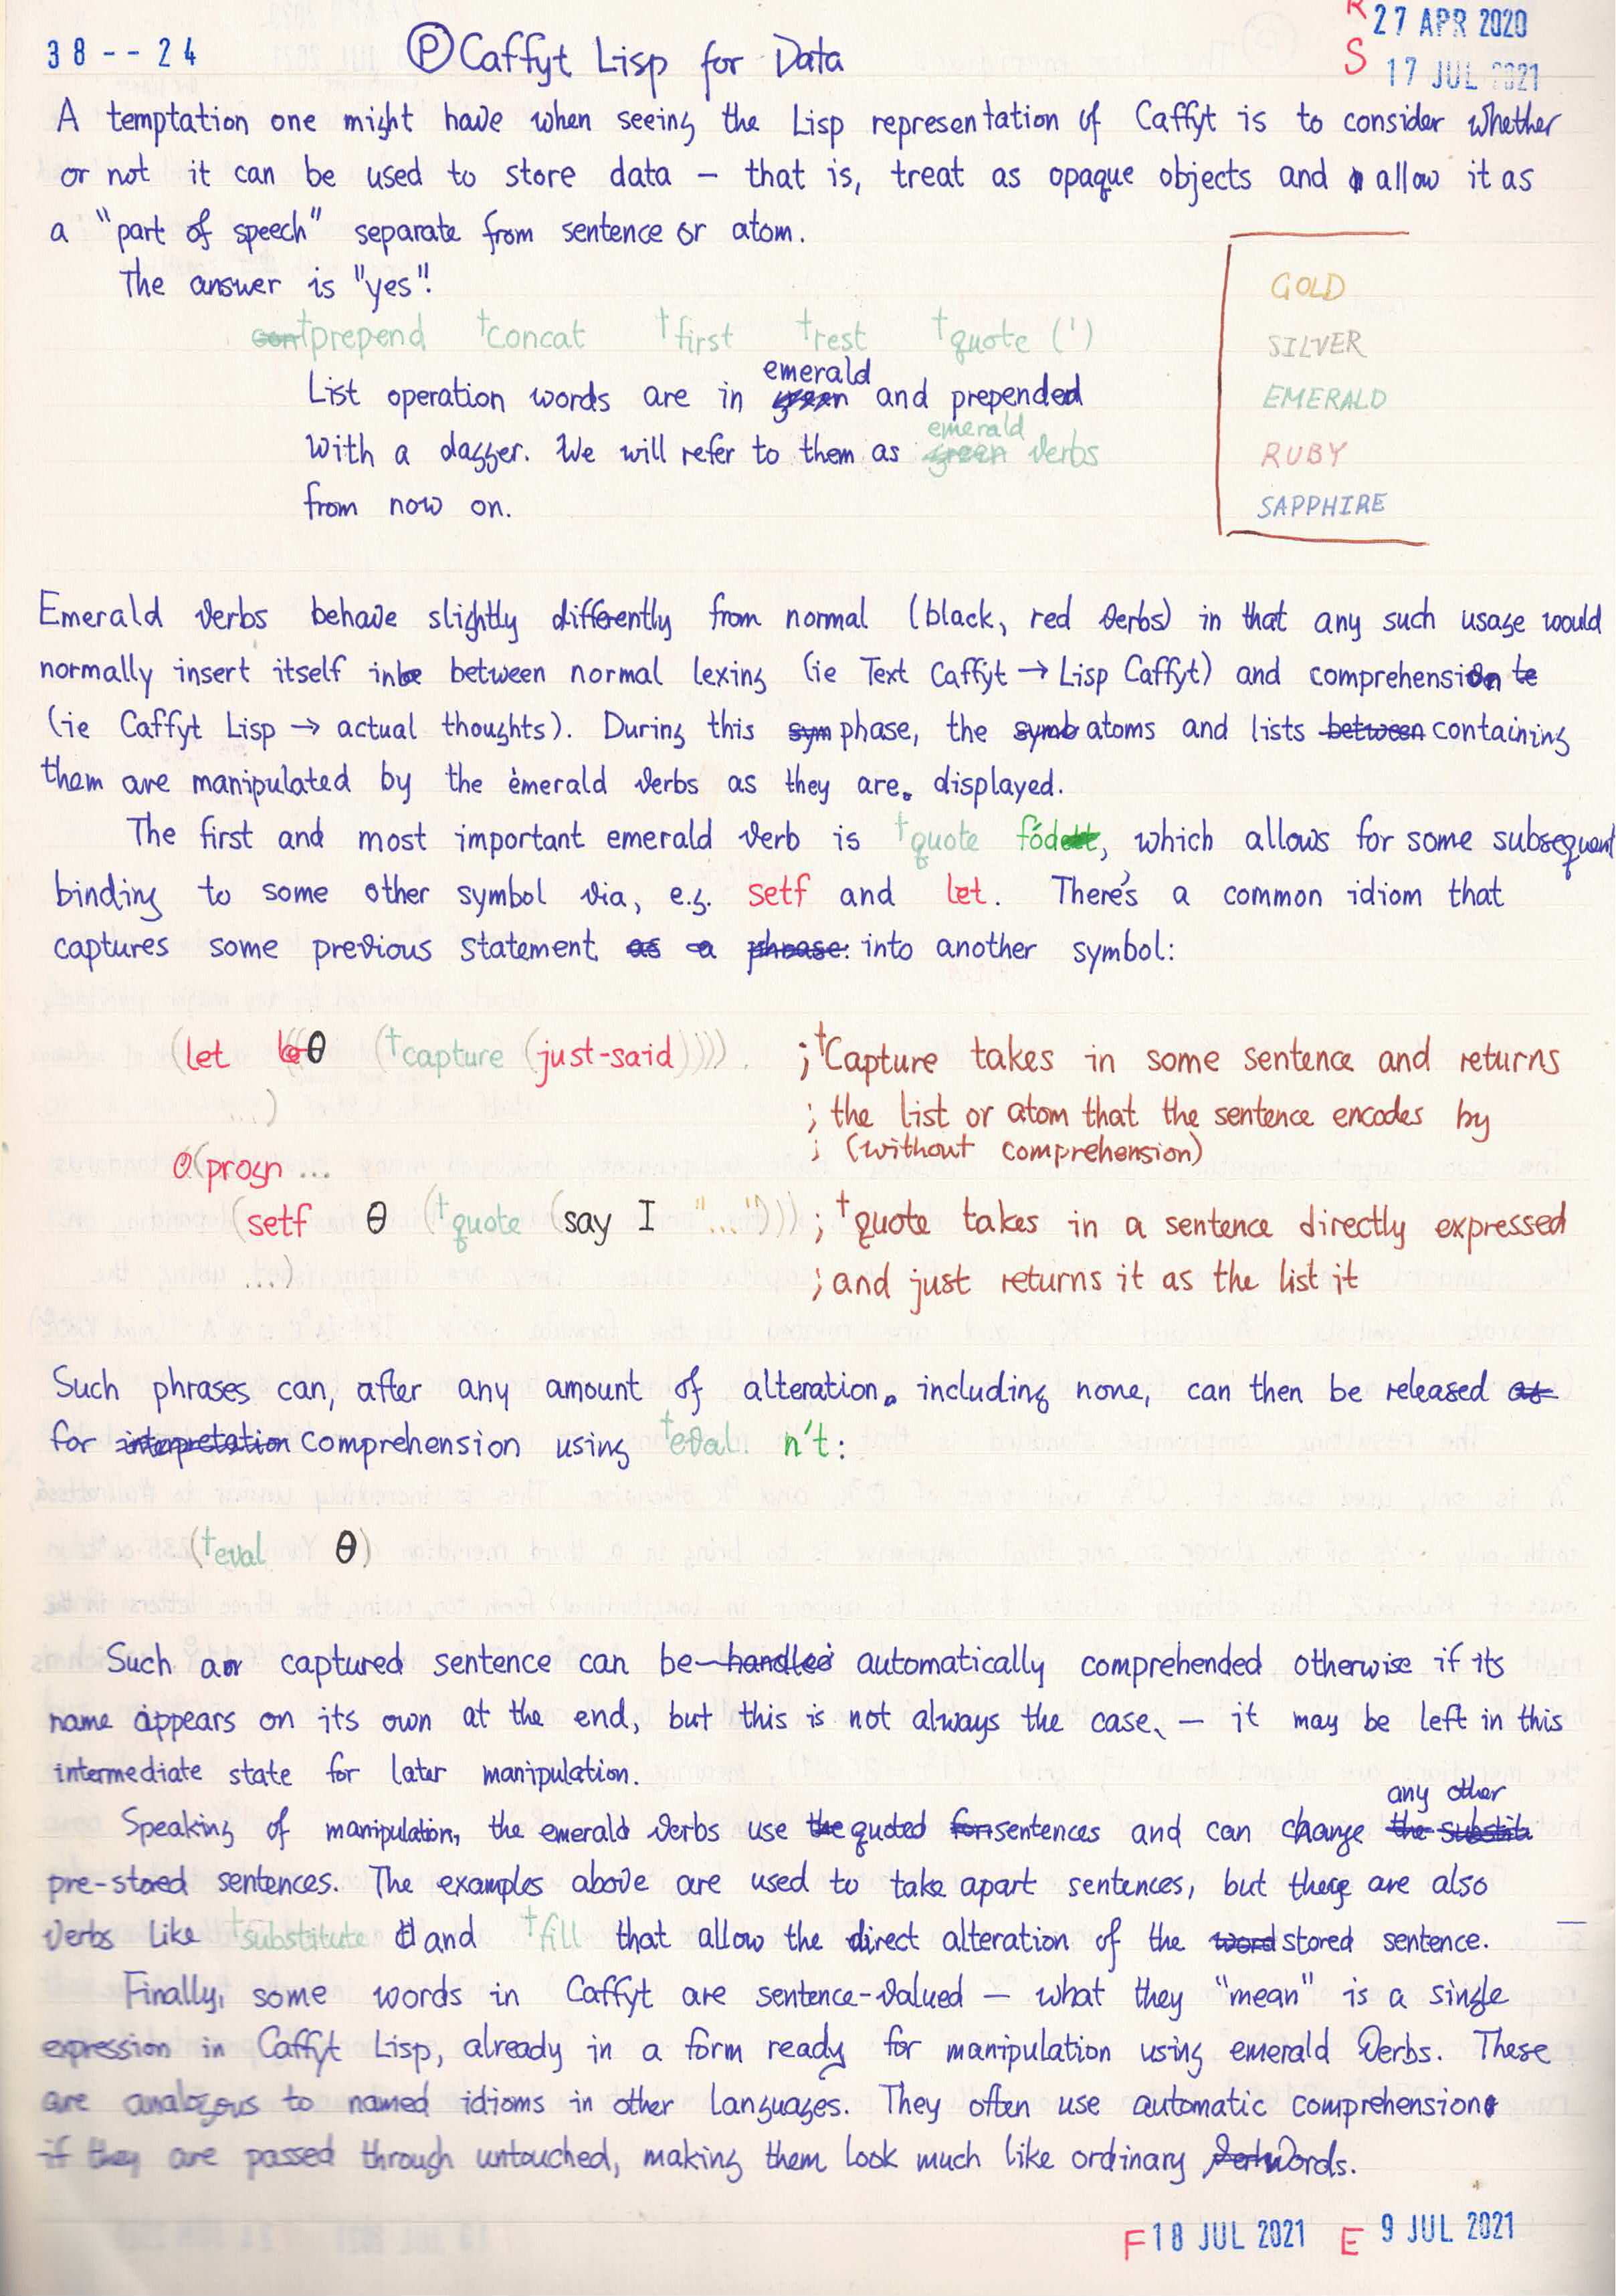 38--24 Ⓟ Caffyt Lisp for Data R 27 APR 2020
S 17 JUL 2021
A temptation one might have when seeing the Lisp representation of Caffyt is to consider whether
or not it can be used to store data – that is, treat as opaque objects and allow it as
a "part of speech" separate from sentence or atom.
The answer is "yes"!
†prepend †concat †first †rest †quote (')
List operation words are in emerald and prepended
with a dagger. We will refer to them as emerald verbs
from now on.
GOLD
SILVER
EMERALD
RUBY
SAPPHIRE
Emerald verbs behave slightly differently from normal (black, red verbs) in that any such usage would
normally insert itself in between normal lexing (ie Text Caffyt → Lisp Caffyt) and comprehension
(ie Caffyt Lisp → actual thoughts). During this phase, the atoms and lists containing
them are manipulated by the emerald verbs as they are displayed.
The first and most important emerald verb is †quote fód, which allows for some subsequent
binding to some other symbol via, e.g. setf and let. There's a common idiom that
captures some previous statement into another symbol:
(let ((θ (†capture (just-said)))) ;†Capture takes in some sentence and returns
...) ; the list or atom that the sentence encodes by
; (without comprehension)
(progn ...
(setf θ (†quote (say I "..."))) ; †quote takes in a sentence directly expressed
...) ; and just returns it as the list it
Such phrases can, after any amount of alteration, including none, can then be released
for comprehension using †eval n't:
(†eval θ)
Such a captured sentence can be automatically comprehended otherwise if its
name appears on its own at the end, but this is not always the case, – it may be left in this
intermediate state for later manipulation.
Speaking of manipulation, the emerald verbs use quoted sentences and can change any other
pre-stored sentences. The examples above are used to take apart sentences, but there are also
verbs like †substitute and †fill that allow the direct alteration of the stored sentence.
Finally, some words in Caffyt are sentence-valued – what they "mean" is a single
expression in Caffyt Lisp, already in a form ready for manipulation using emerald verbs. These
are analogous to named idioms in other languages. They often use automatic comprehension
if they are passed through untouched, making them look much like ordinary words.
F 18 JUL 2021 E 9 JUL 2021